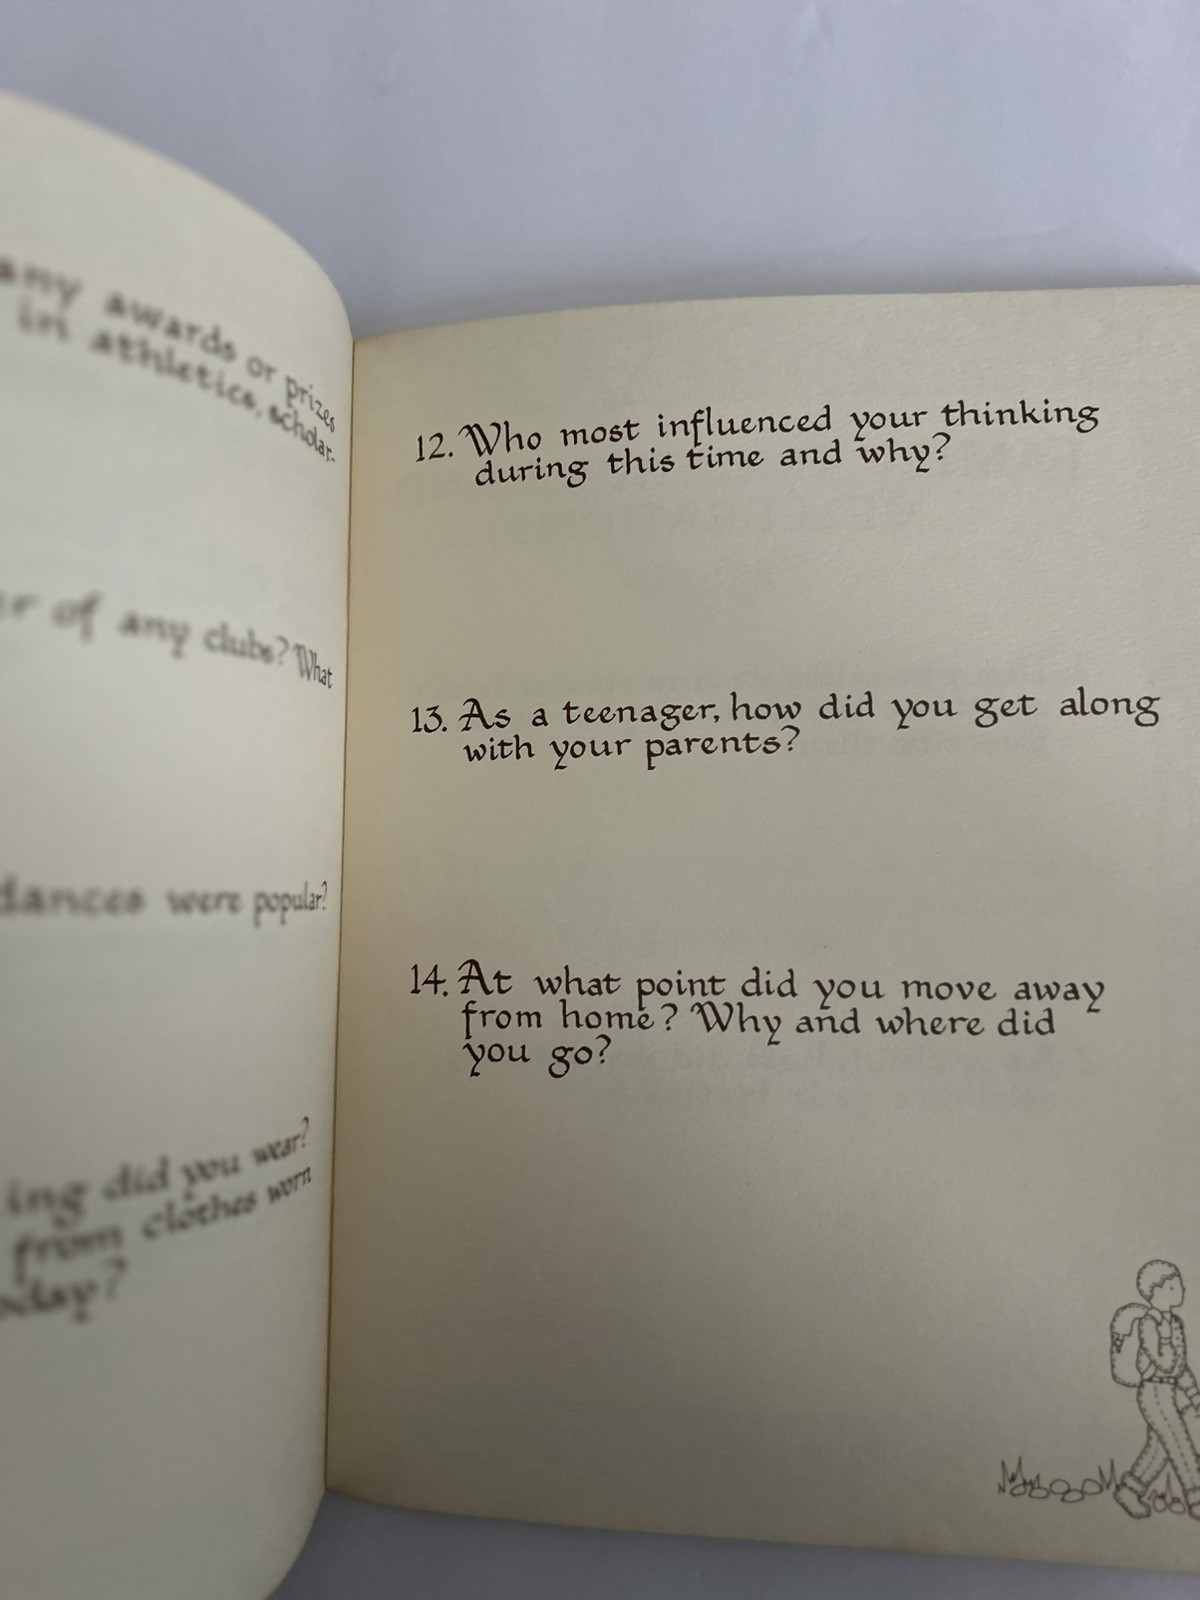 any awards or prizes
in athletics, scholar-
er of any clubs? What
dances were popular?
ing did you wear?
from clothes worn
oday?
12. Who most influenced your thinking
during this time and why?
13. As a teenager, how did you get along
with your parents?
14. At what point did you move away
from home? Why and where did
you go?